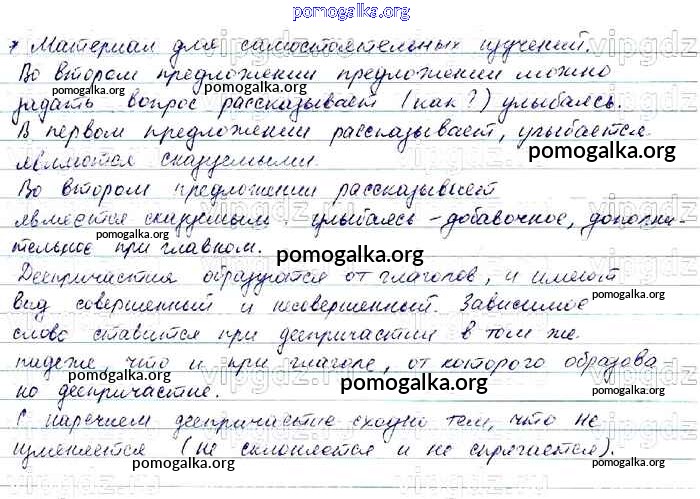 pomogalka.org
* Материал для самостоятельных изучений.
Во втором предложении предложении можно
задать вопрос рассказывает (как?) улыбаясь.
pomogalka.org
В первом предложении рассказывает, улыбается
являются сказуемыми.
pomogalka.org
Во втором предложении рассказывает
является сказуемым. улыбаясь - добавочное, дополни-
тельное при главном.
pomogalka.org
pomogalka.org
Деепричастия образуются от глаголов, и имеют
вид совершенный и несовершенный. Зависимое
pomogalka.org
слово ставится при деепричастии в том же
падеже, что и при глаголе, от которого образова
но деепричастие.
pomogalka.org
pomogalka.org
С наречием деепричастие сходно тем, что не
изменяется (не склоняется и не спрягается).
pomogalka.org
pomogalka.org